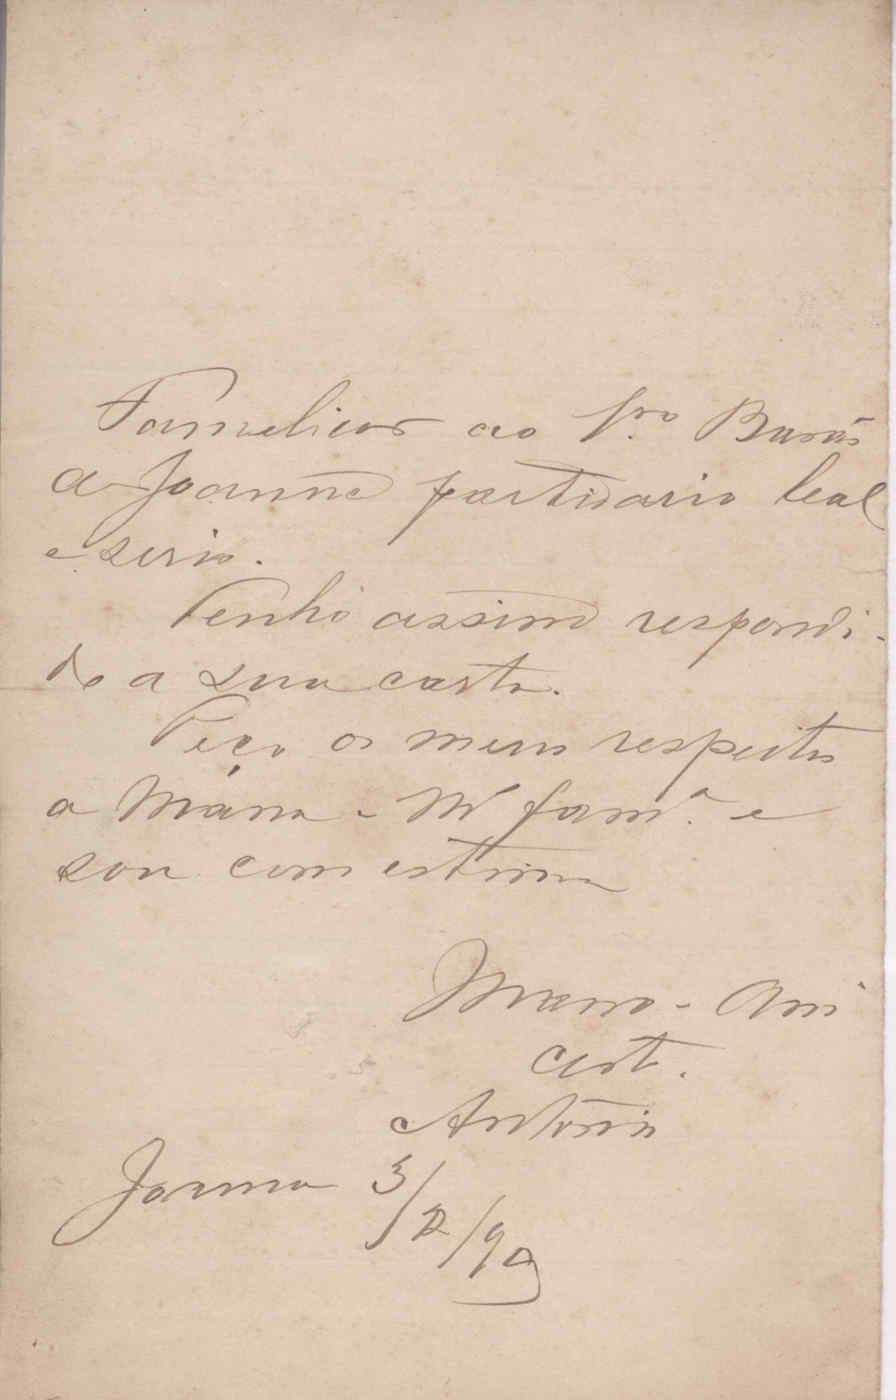 Famelicos ao Snr.º Barão
de Joanne partidario leal
e serio.
Tenho assim respondi-
do a sua carta.
Peço os meus respeitos
a Mána e Mª famª. e
sou com estima
Mano - Am
Cert.
António
Joanne 3/2/90